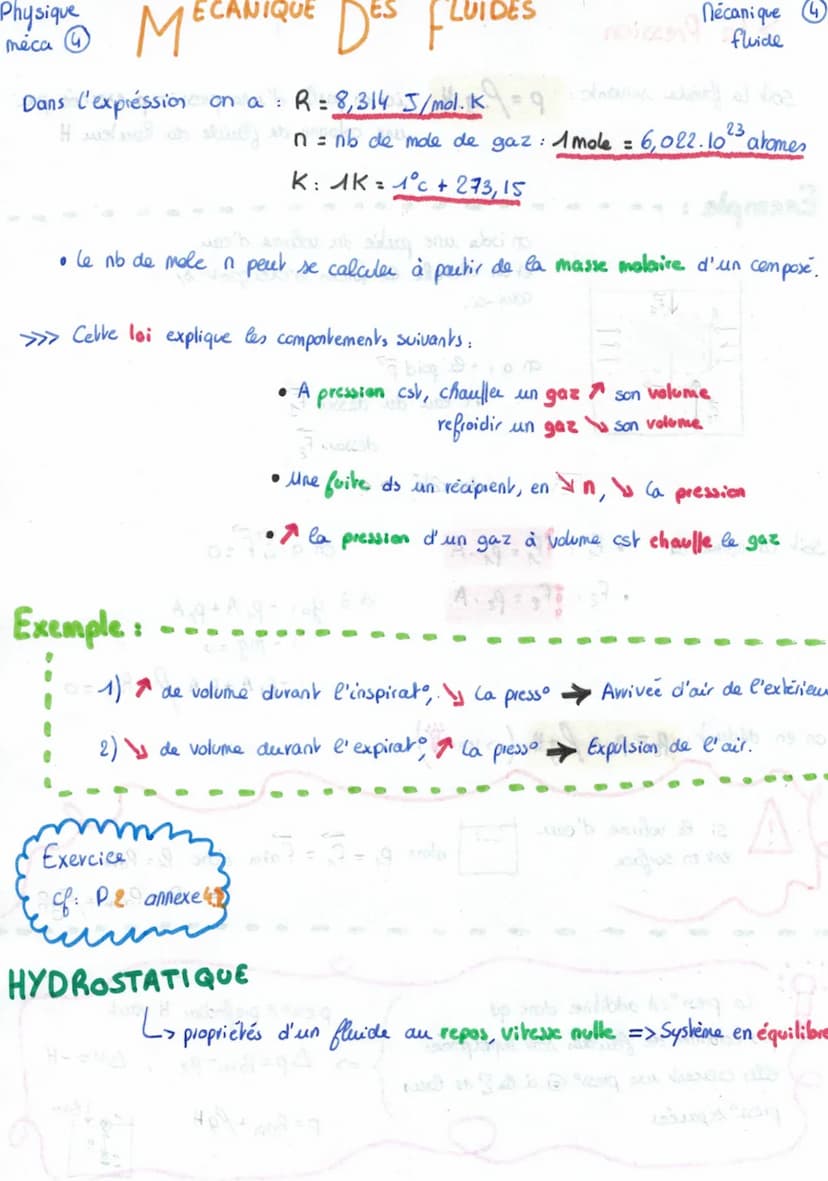 Physique
méca ④
MECANIQUE DES FLUIDES
Mécanique ④
fluide
Dans l'expréssion on a : R = 8,314 J/mol.K
n = nb de mole de gaz : 1 mole = 6,022.10²³ atomes
K : 1K = 1°c + 273,15
• Le nb de mole n peut se calculer à partir de la masse molaire d'un composé.
>>> Cette loi explique les comportements suivants :
• A pression cst, chauffer un gaz ↗ son volume
refroidir un gaz ↘ son volume
• Une fuite ds un récipient, en ↘ n, ↘ la pression
• ↗ la pression d'un gaz à volume cst chauffe le gaz
Exemple :
1) ↗ de volume durant l'inspirat°, ↘ la press° → Arrivée d'air de l'extérieur
2) ↘ de volume durant l'expirat°, ↗ la press° → Expulsion de l'air.
Exercice
cf: P2 annexe
HYDROSTATIQUE
↳ propriétés d'un fluide au repos, vitesse nulle => Système en équilibre